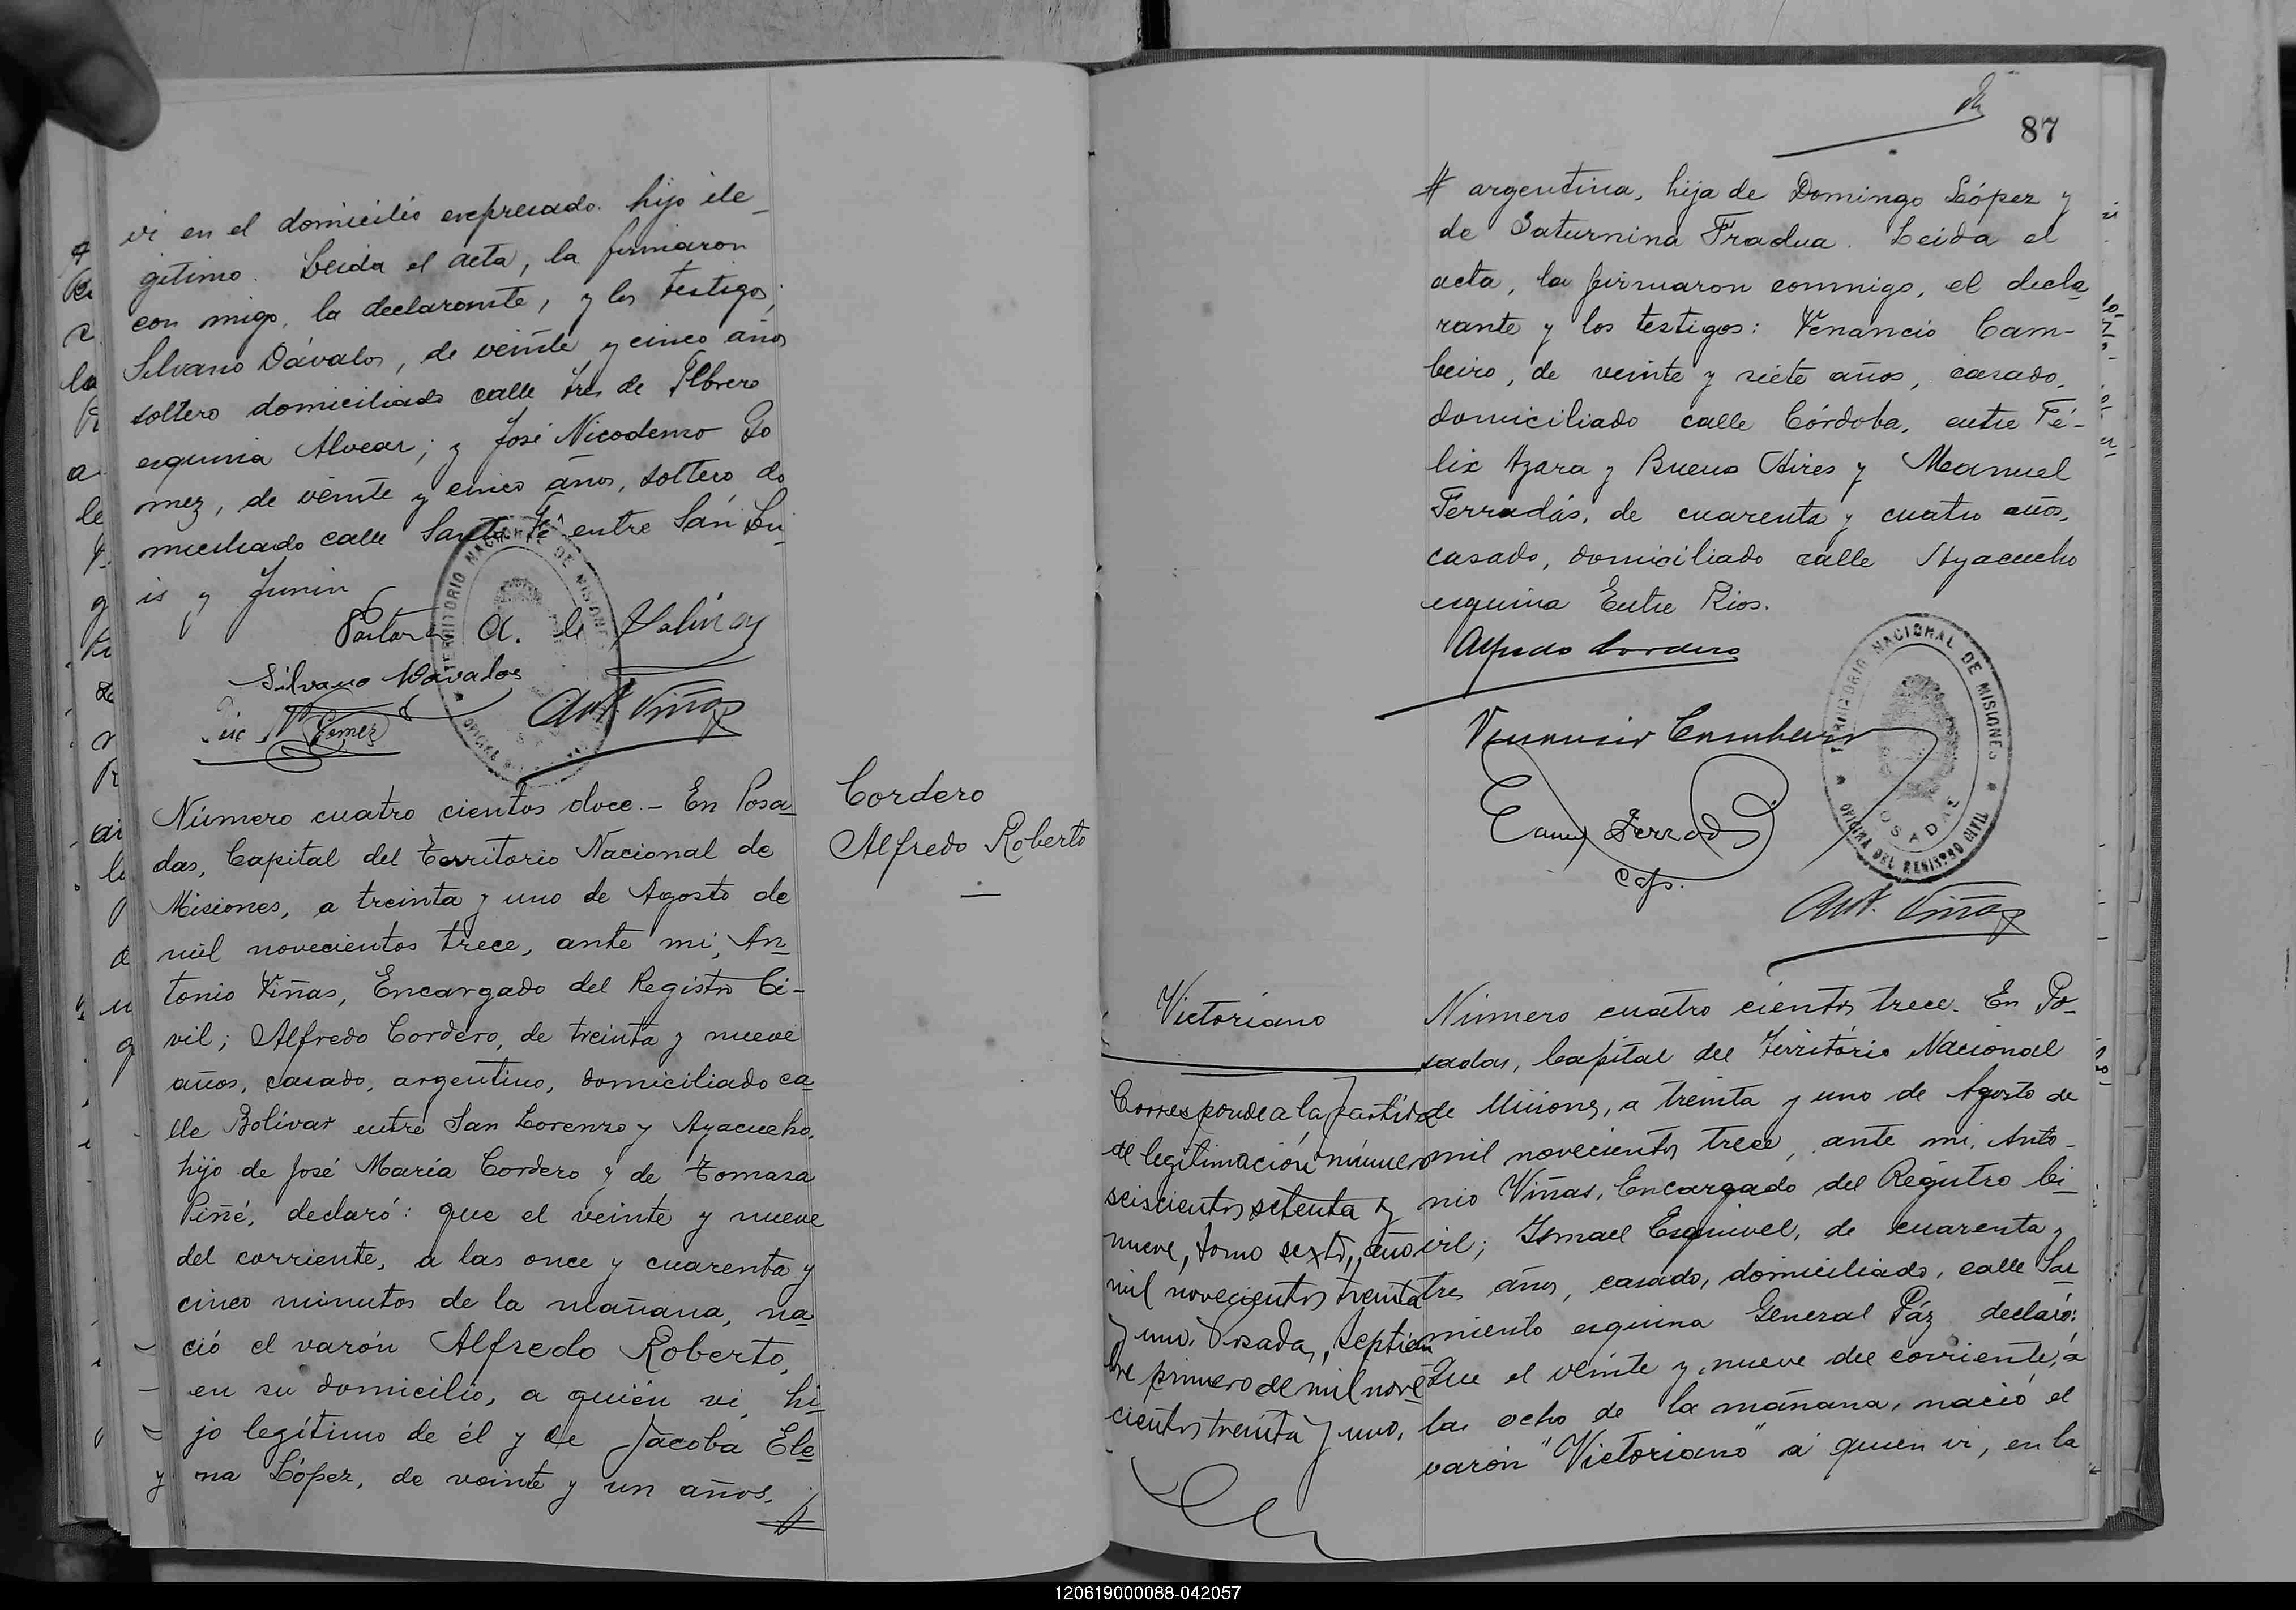 vi en el domicilio expresado. hijo ile-
gitimo. Leida el acta, la firmaron
con migo, la declarante, y los testigos;
Silvano Dávalos, de veinte y cinco años
soltero domiciliado calle tres de Febrero
esquina Alvear; y José Nicodemo Go
mez, de veinte y cinco años, soltero do
miciliado calle Santa Fé entre San Lu-
is y Junin
Pastora A. de
Silvano Davalos
Gomez
Ant. Viñas
TERRITORIO NACIONAL DE MISIONES
Número cuatro cientos doce.- En Posa-
das, Capital del Territorio Nacional de
Misiones, a treinta y uno de Agosto de
mil novecientos trece, ante mi, An-
tonio Viñas, Encargado del Registro Ci-
vil; Alfredo Cordero, de treinta y nueve
años, casado, argentino, domiciliado ca-
lle Bolívar entre San Lorenzo y Ayacucho,
hijo de José María Cordero y de Tomasa
Piñé, declaró: que el veinte y nueve
del corriente, a las once y cuarenta y
cinco minutos de la mañana, na-
ció el varón Alfredo Roberto,
en su domicilio, a quién vi, hi-
jo legítimo de él y de Jacoba Ele-
na López, de veinte y un años,
#
Cordero
Alfredo Roberto
87
# argentina, hija de Domingo López y
de Saturnina Fradua. Leida el
acta, la firmaron conmigo, el decla-
rante y los testigos: Venancio Cam-
beiro, de veinte y siete años, casado,
domiciliado calle Córdoba, entre Fé-
lix Azara y Buenos Aires y Manuel
Ferradás, de cuarenta y cuatro años,
casado, domiciliado calle Ayacucho
esquina Entre Rios.
Alfredo Cordero
Venancio Cambeiro
Ferradás
Ant. Viñas
TERRITORIO NACIONAL DE MISIONES
OFICINA DEL REGISTRO CIVIL
POSADAS
Victoriano
Corresponde a la partida
de legitimación número
seiscientos setenta y
nueve, tomo sexto, año
mil novecientos treinta
y uno. Posadas, septiem
bre primero de mil nove
cientos treinta y uno.
Número cuatro cientos trece. En Po-
sadas, Capital del Territorio Nacional
de Misiones, a treinta y uno de Agosto de
mil novecientos trece, ante mi, Anto-
nio Viñas, Encargado del Registro Ci-
vil; Ismael Esquivel, de cuarenta y
tres años, casado, domiciliado, calle Sar
miento esquina General Páz declaró:
Que el veinte y nueve del corriente, a
las ocho de la mañana, nació el
varón "Victoriano" a quien vi, en la
120619000088-042057